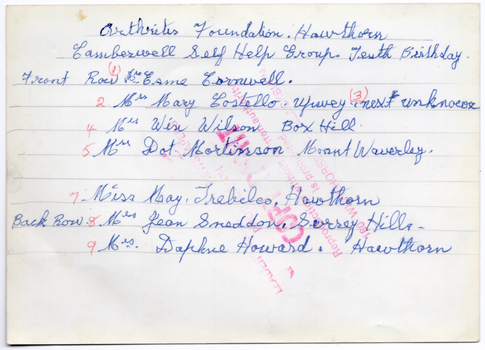 Arthritis Foundation. Hawthorn
Camberwell Self Help Group. Tenth Birthday.
Front Row (1) Mrs Esme Cornwell.
2 Mrs Mary Costello. Upwey (3) next unknown
4 Mrs Win Wilson Box Hill.
5 Mrs Dot Mortinson Mount Waverley.
7. Miss May. Trebilco, Hawthorn
Back Row 8 Mrs Jean Sneddon, Surrey Hills.
9 Mrs. Daphne Howard. Hawthorn